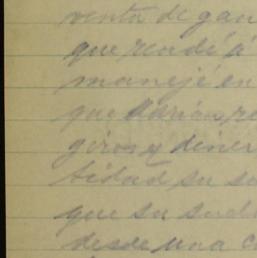 venta de gan
que rendí á
manejé en
que darían re
giros y diner
tidad su sa
que su sueld
desde una c